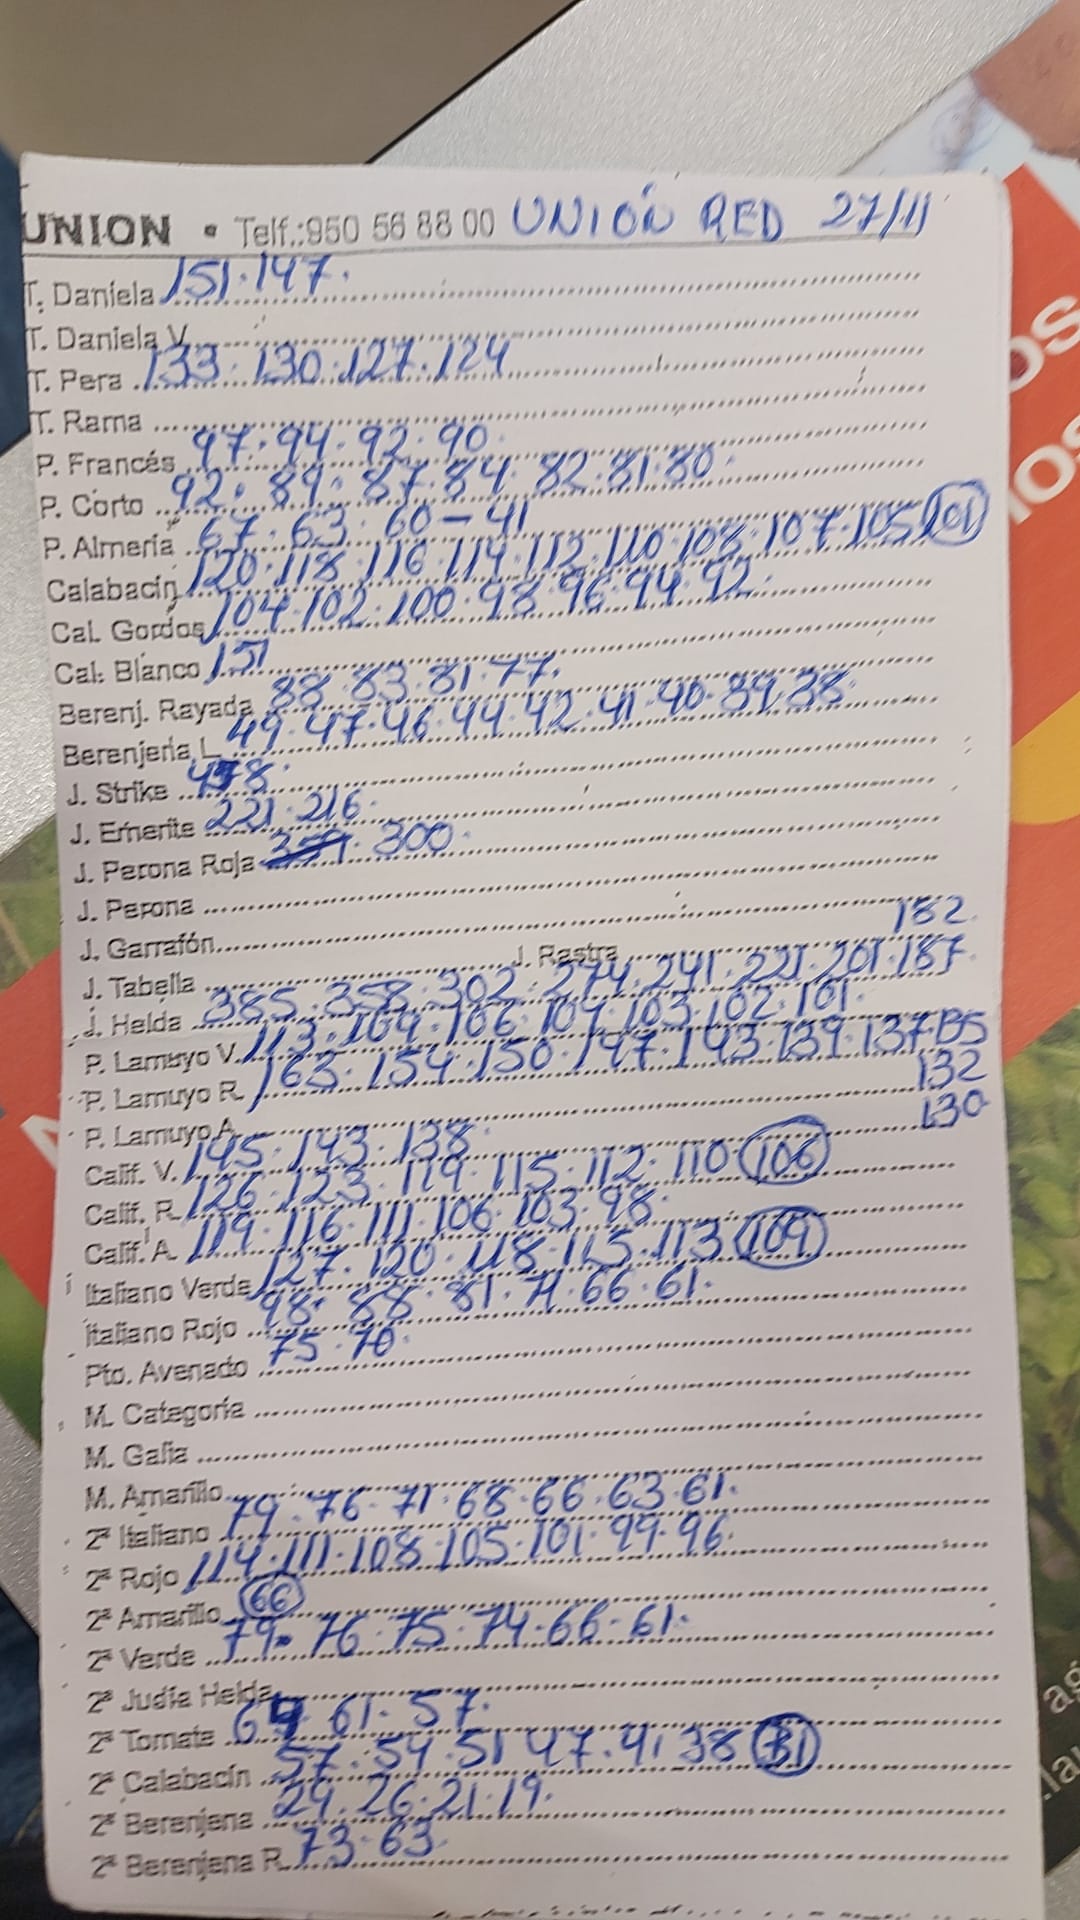 UNION • Telf.:950 56 88 00 UNIÓN RED 27/11
T. Daniela 151·147·
T. Daniela V.
T. Pera 133·130·127·124
T. Rama
P. Francés 97·94·92·90·
P. Corto 92·89·87·84·82·81·80·
P. Almería 67·63·60-41
Calabacín 120·118·116·114·112·110·108·107·105 101
Cal. Gordos 104·102·100·98·96·94·92·
Cal. Blanco 151
Berenj. Rayada 88·83·81·77·
Berenjena L. 49·47·46·44·42·41·40·39·38·
J. Strike
J. Emerite 221·216·
J. Perona Roja 300·
J. Perona
J. Garrafón
J. Tabella J. Rastra 182
J. Helda 385·358·302·274·241·221·201·187·
P. Lamuyo V. 113·109·106·104·103·102·101·
P. Lamuyo R. 163·154·150·147·143·139·137·135
132
P. Lamuyo A. 130·
Calif. V. 145·143·138·
Calif. R. 126·123·119·115·112·110·106
Calif. A. 119·116·111·106·103·98·
Italiano Verde 127·120·118·115·113 109
Italiano Rojo 98·88·81·71·66·61·
Pto. Avenado 75·70·
M. Categoría
M. Galia
M. Amarillo
2ª Italiano 79·76·71·68·66·63·61·
2ª Rojo 114·111·108·105·101·99·96·
2ª Amarillo 66
2ª Verde 79·76·75·74·66·61·
2ª Judía Helda
2ª Tomate 61·57·
2ª Calabacín 57·54·51·47·41·38 31
2ª Berenjena 29·26·21·19·
2ª Berenjena R. 73·63·